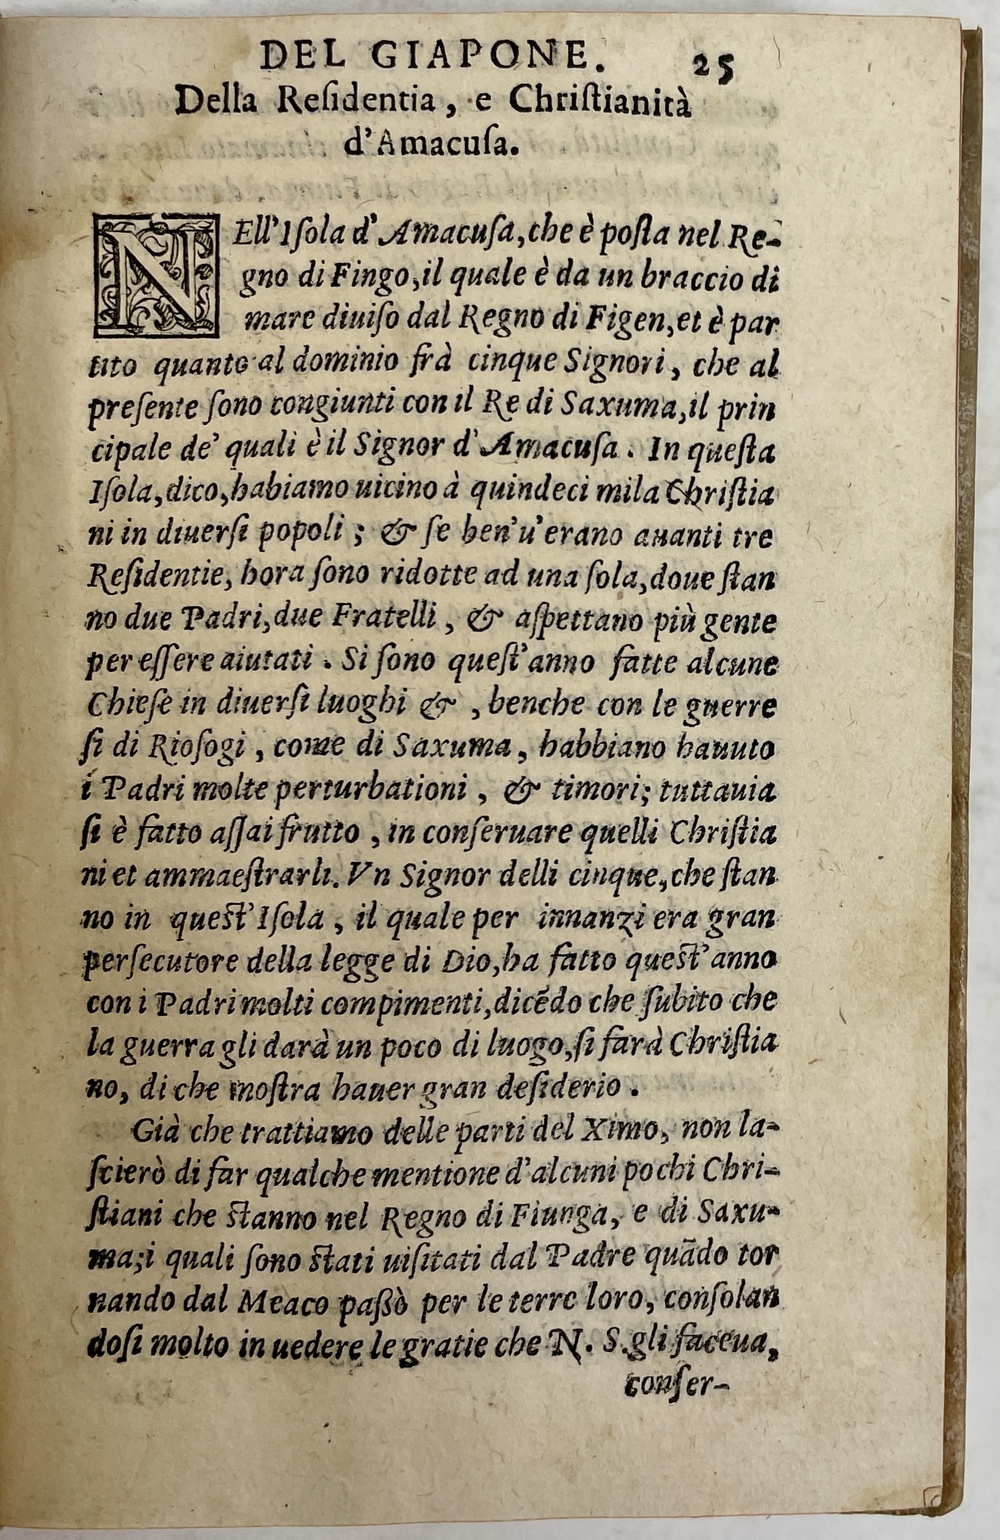 DEL GIAPONE. 25
Della Reſidentia, e Chriſtianità
d'Amacuſa.
NEll'Iſola d'Amacuſa, che è poſta nel Re-
gno di Fingo, il quale è da un braccio di
mare diuiſo dal Regno di Figen, et è par
tito quanto al dominio frà cinque Signori, che al
preſente ſono congiunti con il Re di Saxuma, il prin
cipale de' quali è il Signor d'Amacuſa. In queſta
Iſola, dico, habiamo uicino à quindeci mila Chriſtia
ni in diuerſi popoli; & ſe ben'u'erano auanti tre
Reſidentie, hora ſono ridotte ad una ſola, doue ſtan
no due Padri, due Fratelli, & aſpettano più gente
per eſſere aiutati. Si ſono queſt'anno fatte alcune
Chieſe in diuerſi luoghi &, benche con le guerre
ſi di Rioſogi, come di Saxuma, habbiano hauuto
i Padri molte perturbationi, & timori; tuttauia
ſi è fatto aſſai frutto, in conſeruare quelli Chriſtia
ni et ammaeſtrarli. Vn Signor delli cinque, che ſtan
no in queſt'Iſola, il quale per innanzi era gran
perſecutore della legge di Dio, ha fatto queſt'anno
con i Padri molti compimenti, dicẽdo che ſubito che
la guerra gli darà un poco di luogo, ſi farà Chriſtia
no, di che moſtra hauer gran deſiderio.
Già che trattiamo delle parti del Ximo, non la-
ſcierò di far qualche mentione d'alcuni pochi Chri-
ſtiani che ſtanno nel Regno di Fiunga, e di Saxu-
ma, i quali ſono ſtati uiſitati dal Padre quãdo tor
nando dal Meaco paßò per le terre loro, conſolan
doſi molto in uedere le gratie che N. S. gli faceua,
conſer-